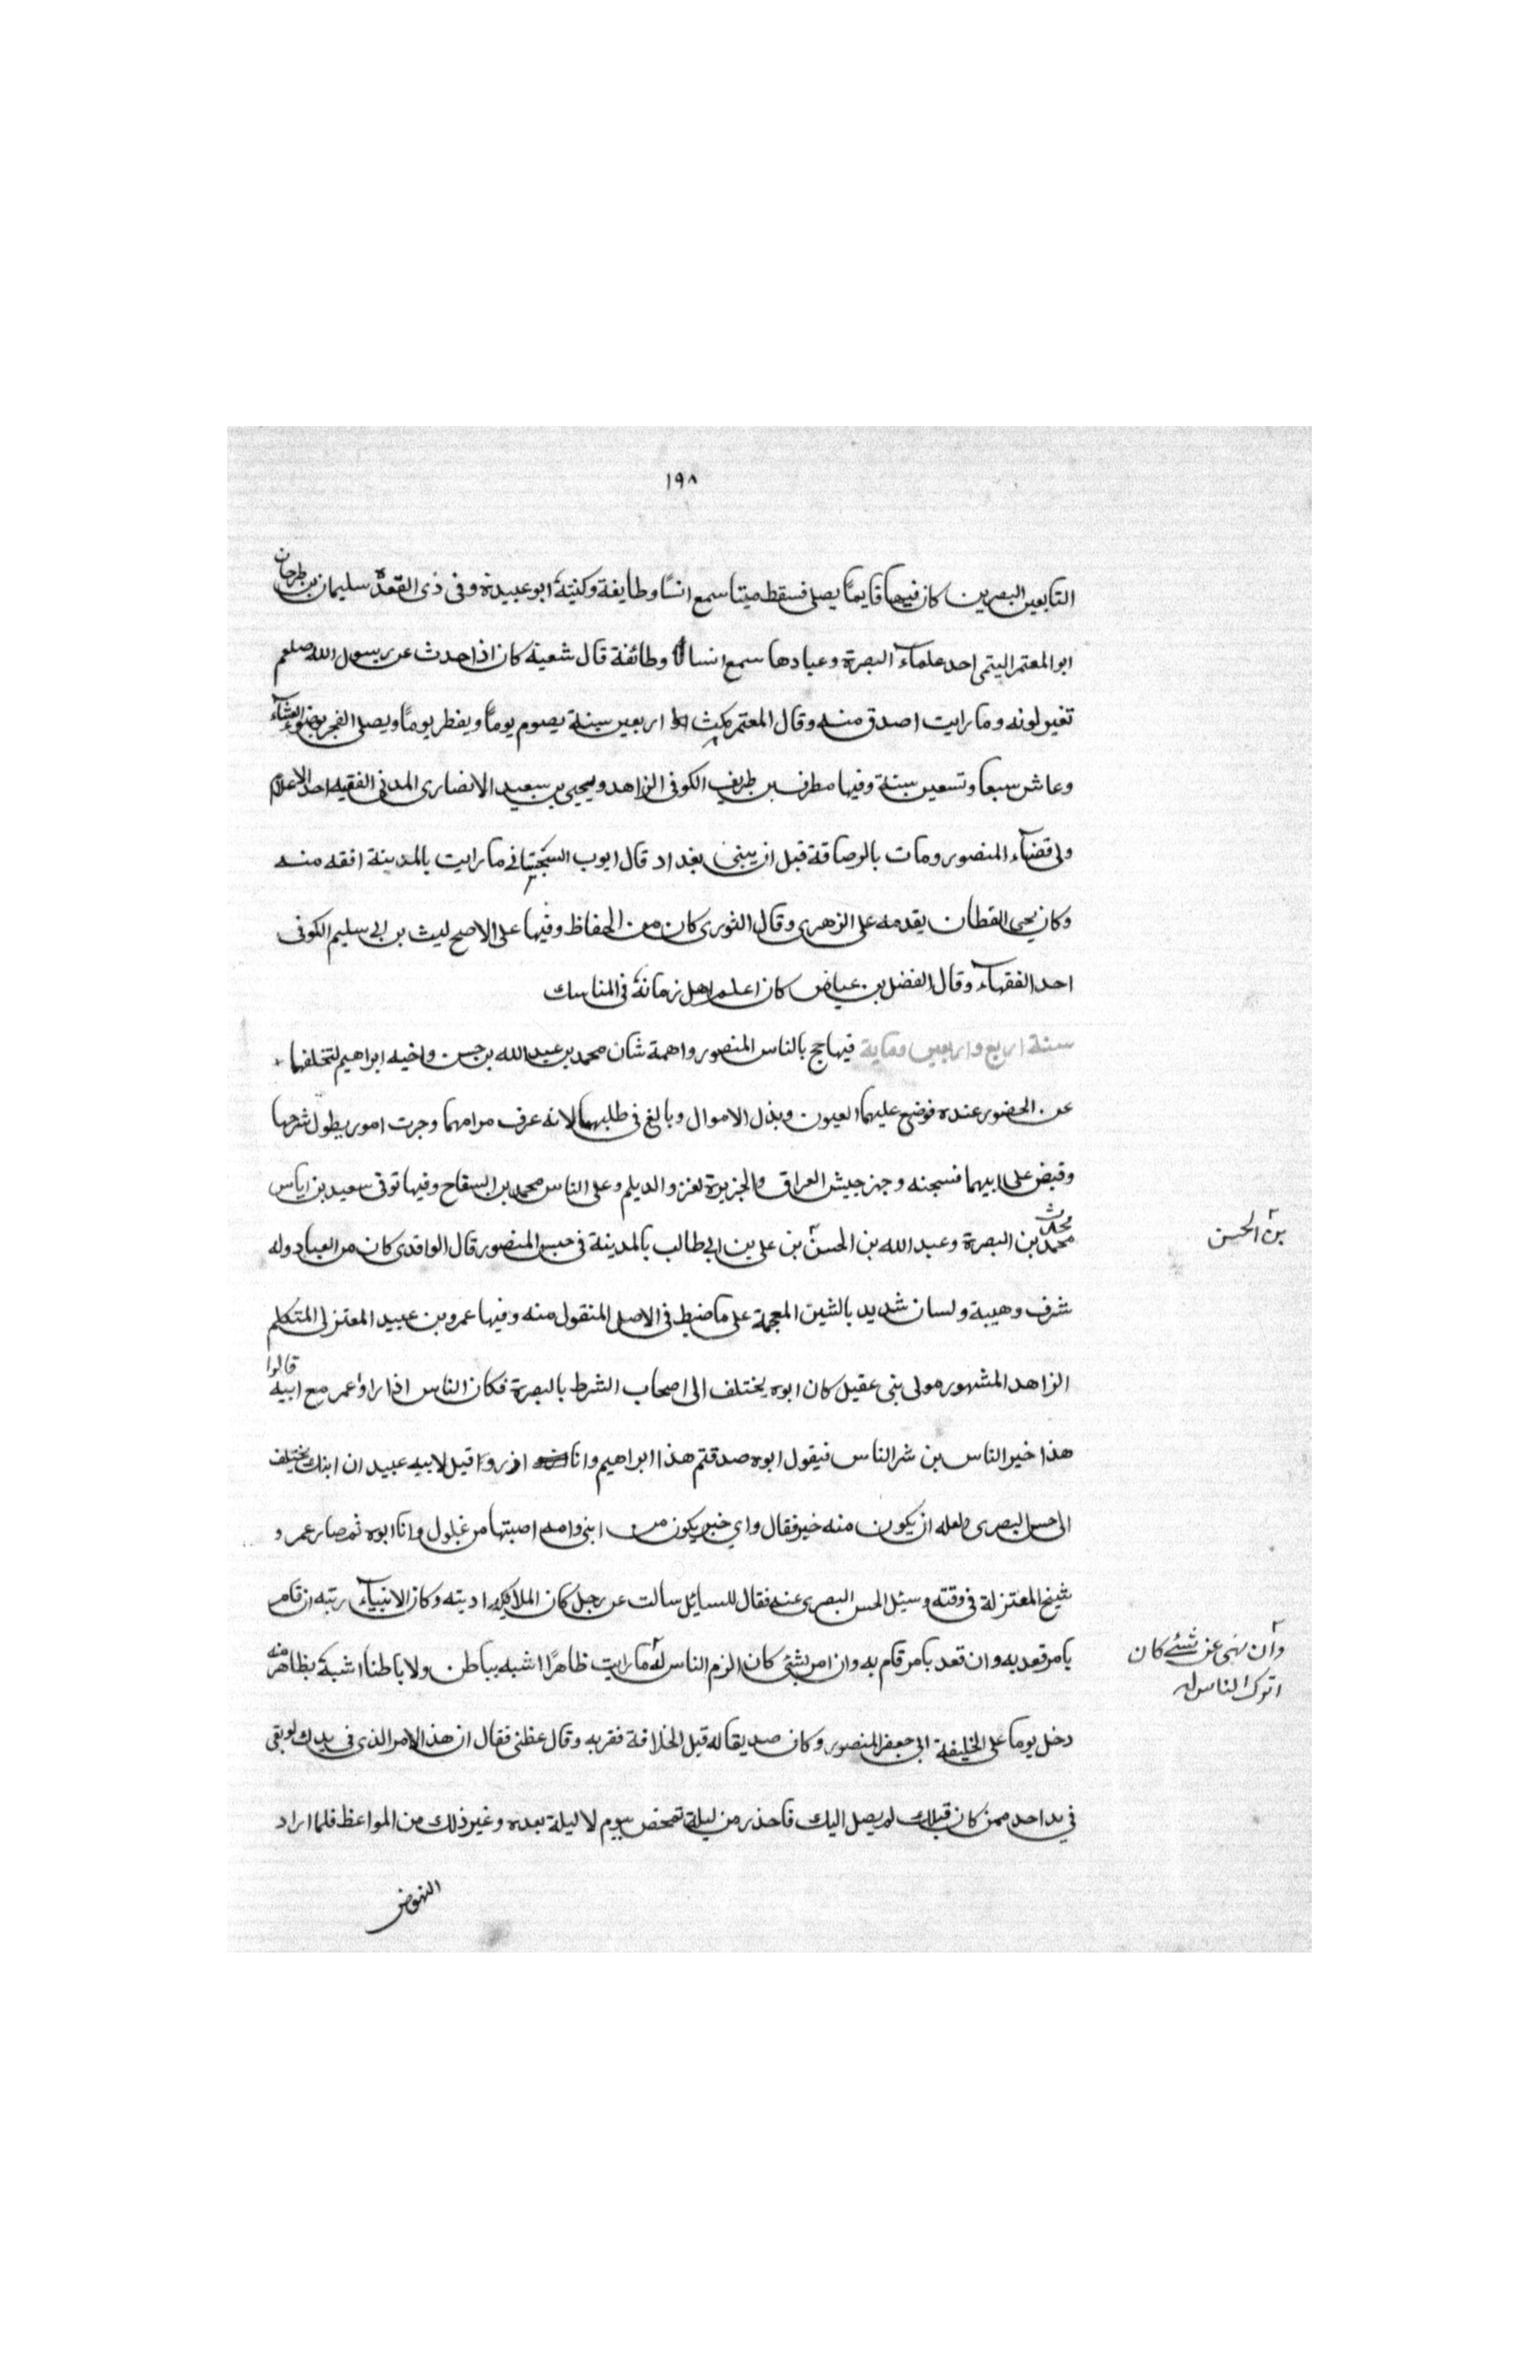 ١٩٨
التابعين البصرين كان فيها قايمًا يصلي فسقط ميتا سمع انسًا وطايفة وكنيته ابو عبيدة وفى ذى القعدة سليمان بن طرحان
ابو المعتمر اليتمى احد علماء البصرة وعبادها سمع انسا وطائفة قال شعبة كان اذا حدث عن رسول الله صلعم
تغير لونه وما رايت اصدق منه وقال المعتمر مكث اربعين سنة يصوم يومًا ويفطر يومًا ويصلى الفجر بوضوء العشاء
وعاش سبعا وتسعين سنة وفيها مطرف بن طريف الكوفى الزاهد ويحيى بن سعيد الانصارى المدنى الفقيه احد الاعلام
ولى قضاء المنصور ومات بالرصافة قبل ان يبنى بغداد قال ايوب السختيانى ما رايت بالمدينة افقه منه
وكان يحيى القطان يقدمه على الزهرى وقال الثورى كان من الحفاظ وفيها على الاصح ليث بن ابى سليم الكوفى
احد الفقهاء وقال الفضل بن عياض كان اعلم اهل زمانه فى المناسك
سنة اربع واربعين ومماية فيها حج بالناس المنصور واهمة شان محمد بن عبد الله بن حسن واخيه ابراهيم لتخلفها
عن الحضور عنده فوضع عليهما العيون وبذل الاموال وبالغ فى طلبهما لانه عرف مرامهما وجرت امور يطول شرحها
وقبض على ابيهما فسجنه وجهز جيش العراق والجزيرة لغزو الديلم وعلى الناس محمد بن السفاح وفيها توفى سعيد بن اياس
محدث
محمد بن البصرة وعبد الله بن الحسن بن على بن ابى طالب بالمدينة فى حبس المنصور قال الواقدى كان من العباد وله
بن الحسن
شرف وهيبة ولسان شديد بالشين المعجمة على ما ضبط فى الاصل المنقول منه وفيها عمرو بن عبيد المعتزلى المتكلم
الزاهد المشهور مولى بنى عقيل كان ابوه يختلف الى اصحاب الشرط بالبصرة فكان الناس اذا راوا عمر مع ابيه قالوا
هذا خير الناس بن شر الناس فيقول ابوه صدقتم هذا ابراهيم وانا ازر وقيل لابيه عبيد ان ابنك يختلف
الى حسن البصرى ولعله ان يكون منه خير فقال واي خير يكون من ابنى وامه اصبتها من غلول وانا ابوه ثم صار عمرو
شيخ المعتزلة فى وقته وسئل الحسن البصرى عنه فقال للسايل سالت عن رجل كان الملائكة ادبته وكان الانبياء ربته ان قام
بامر قعد به وان قعد بامر قام به وان امر بشئ كان الزم الناس له ما رايت ظاهرًا اشبه بباطن ولا باطنا اشبه بظاهر منه
وان نهى عن شئ كان
اترك الناس له
دخل يوما على الخليفة ابى جعفر المنصور وكان صديقا له قبل الخلافة فقربه وقال عظنى فقال ان هذا الامر الذى فى يدك لو بقى
فى يد احد ممن كان قبلك لم يصل اليك فاحذر من ليلة تمخض بيوم لا ليلة بعده وغير ذلك من المواعظ فلما اراد
النهوض